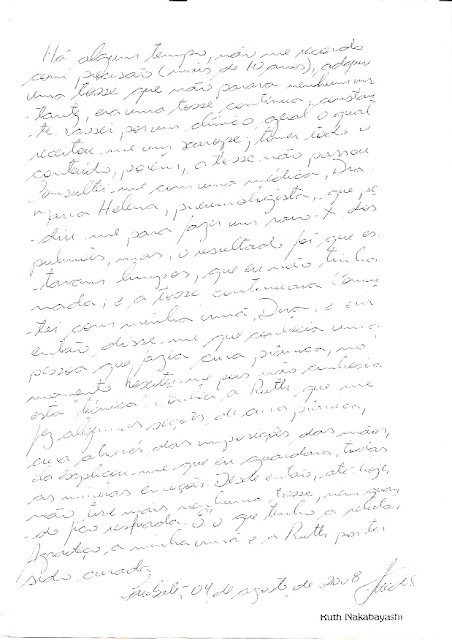 Há alguns tempo, não me recordo
com precisão (mais de 10 anos), adquiri
uma tosse que não parava nenhum ins-
tante, era uma tosse contínua, constan-
te. Passei por um clínico geral o qual
receitou-me um xarope; tomei todo o
conteúdo, porém, a tosse não passou
Consultei-me com uma médica, Dra.
Maria Helena, pneumologista, que pe-
diu-me para fazer um raio-X dos
pulmões, mas, o resultado foi que es-
tavam limpos, que eu não tinha
nada; e a tosse continuava. Comen-
tei com minha irmã, Dina, e ela
então, disse-me que conhecia uma
pessoa que fazia cura prânica, no
momento hesitei-me pois não conhecia
esta técnica. Conheci a Ruth, que me
fez algumas seções de cura prânica,
cura através das imposições das mãos,
ela explicou-me que eu guardava todas
as minhas emoções. Desde então, até hoje,
não tive mais nenhuma tosse, nem quan-
do fico resfriada. É o que tenho a relatar.
Agradeço a minha irmã e a Ruth por ter
sido curada
04, de agosto, de 2008
Ruth Nakabayashi